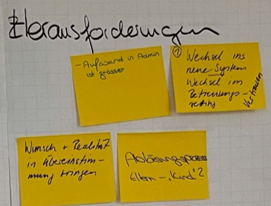 Herausforderungen
- Aufwand in Admin
ist grösser
① Wechsel ins
neue System
Wechsel im
Betreuungs-
Vertrauen
Wunsch + Realität
in Übereinstim-
mung bringen
Ablösungsprozess
Eltern - "Kind"?